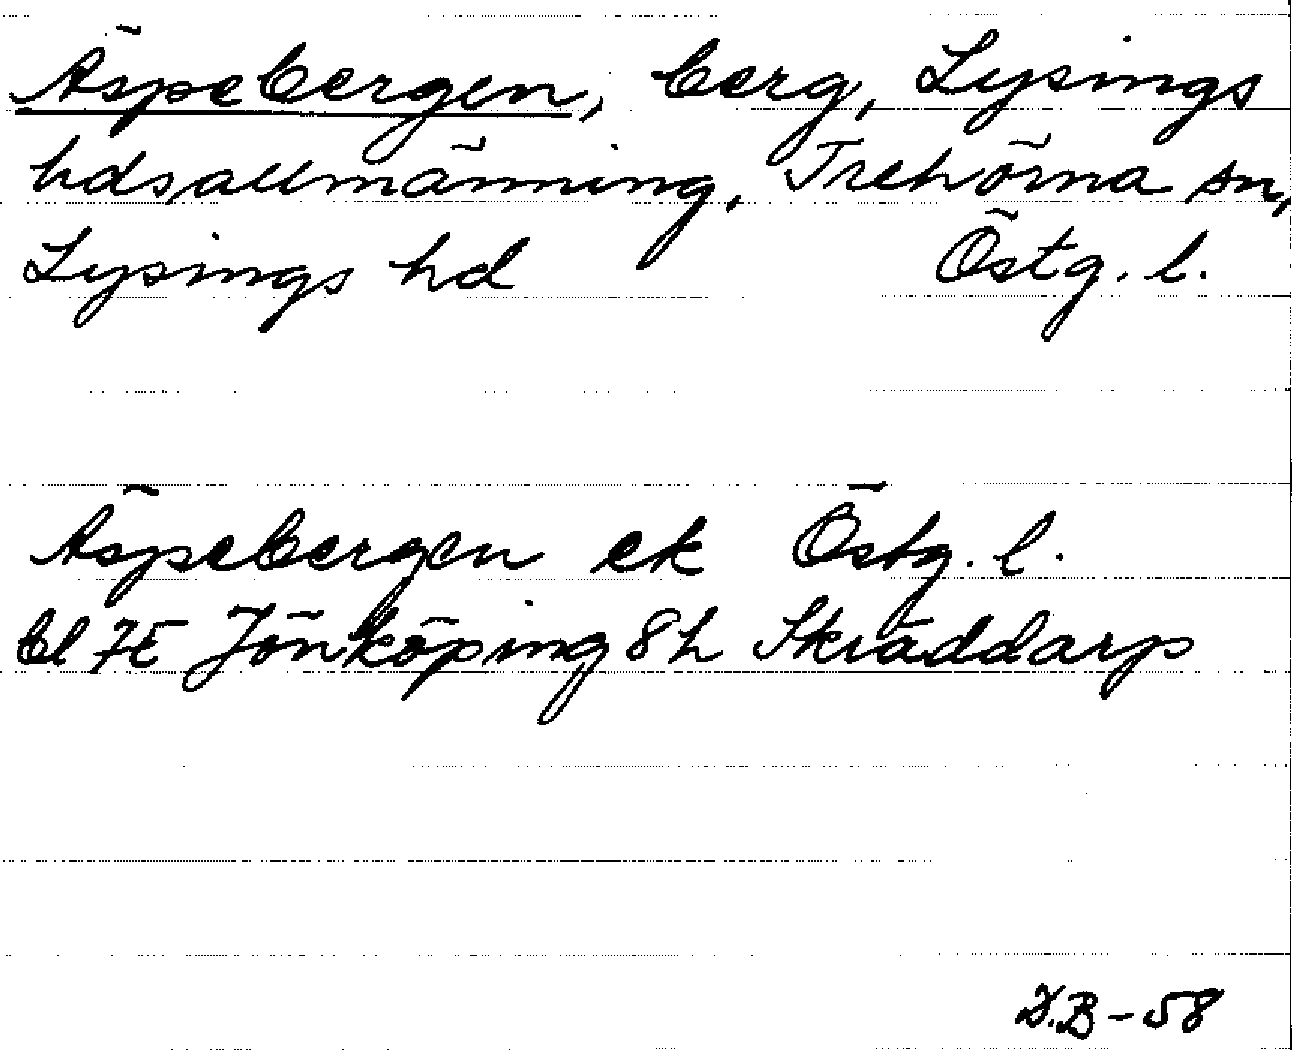 Äspebergen, berg, Lysings
hdsallmänning, Trehörna sn,
Lysings hd Östg. l.
Äspebergen ek Östg. l.
bl 7E Jönköping 8h Skräddarp
D.B-58